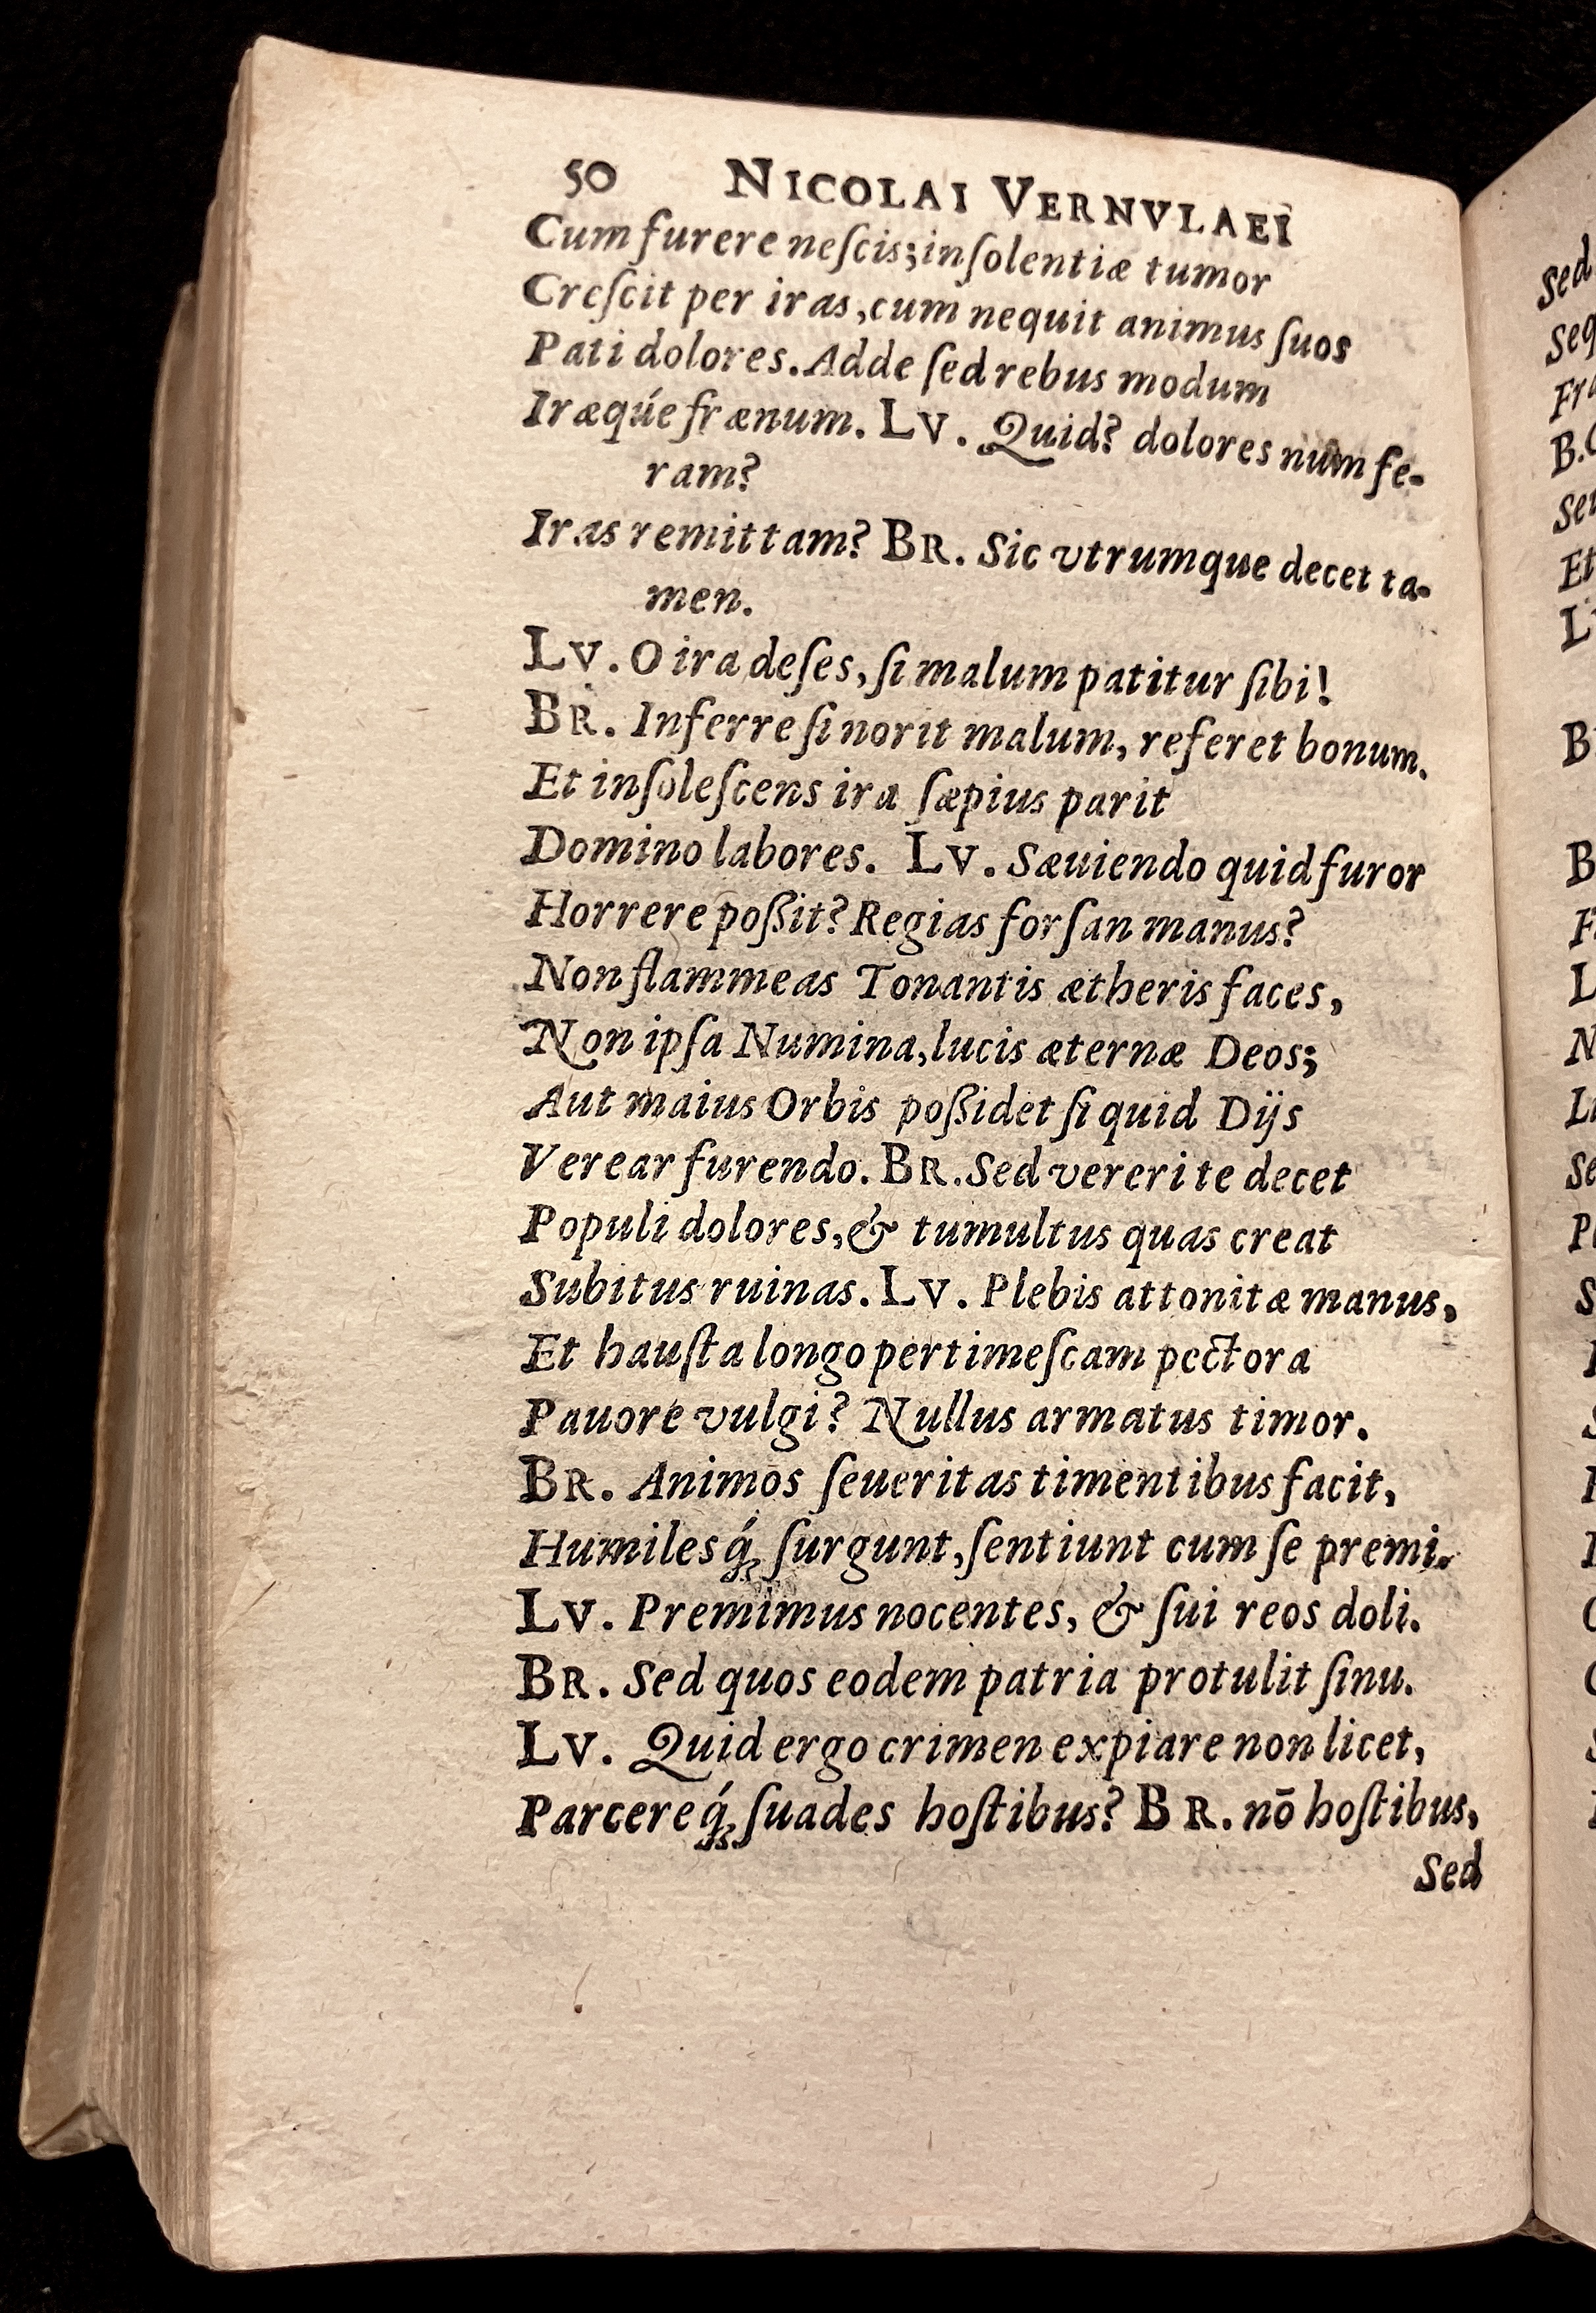 50 NICOLAI VERNVLAEI
Cum furere neſcis; inſolentiæ tumor
Creſcit per iras, cum nequit animus ſuos
Pati dolores. Adde ſed rebus modum
Iræqúe frænum. LV. Quid? dolores num fe-
ram?
Iras remittam? BR. Sic vtrumque decet ta-
men.
LV. O ira deſes, ſi malum patitur ſibi!
BR. Inferre ſi norit malum, referet bonum.
Et inſoleſcens ira ſæpius parit
Domino labores. LV. Sæuiendo quid furor
Horrere poßit? Regias forſan manus?
Non flammeas Tonantis ætheris faces,
Non ipſa Numina, lucis æternæ Deos;
Aut maius Orbis poßidet ſi quid Dijs
Verear furendo. BR. Sed vereri te decet
Populi dolores, & tumultus quas creat
Subitus ruinas. LV. Plebis attonitæ manus,
Et hauſta longo pertimeſcam pectora
Pauore vulgi? Nullus armatus timor.
BR. Animos ſeueritas timentibus facit,
Humilesq́; ſurgunt, ſentiunt cum ſe premi.
LV. Premimus nocentes, & ſui reos doli.
BR. Sed quos eodem patria protulit ſinu.
LV. Quid ergo crimen expiare non licet,
Parcereq́; ſuades hoſtibus? BR. nō hoſtibus,
Sed
sed
seq
Fra
B.
Ser
Et